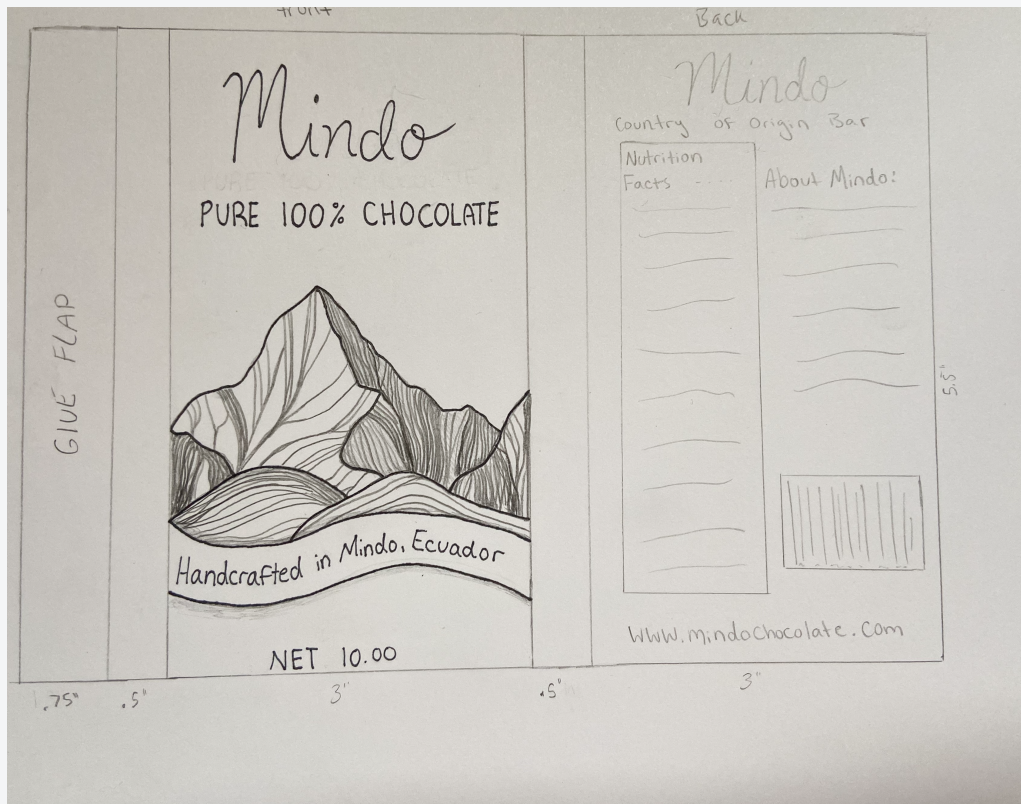 front
Back
GLUE FLAP
Mindo
PURE 100% CHOCOLATE
Handcrafted in Mindo, Ecuador
NET 10.00
Mindo
Country of Origin Bar
Nutrition
Facts
About Mindo:
www.mindochocolate.com
5.5"
.75"
.5"
3"
.5"
3"